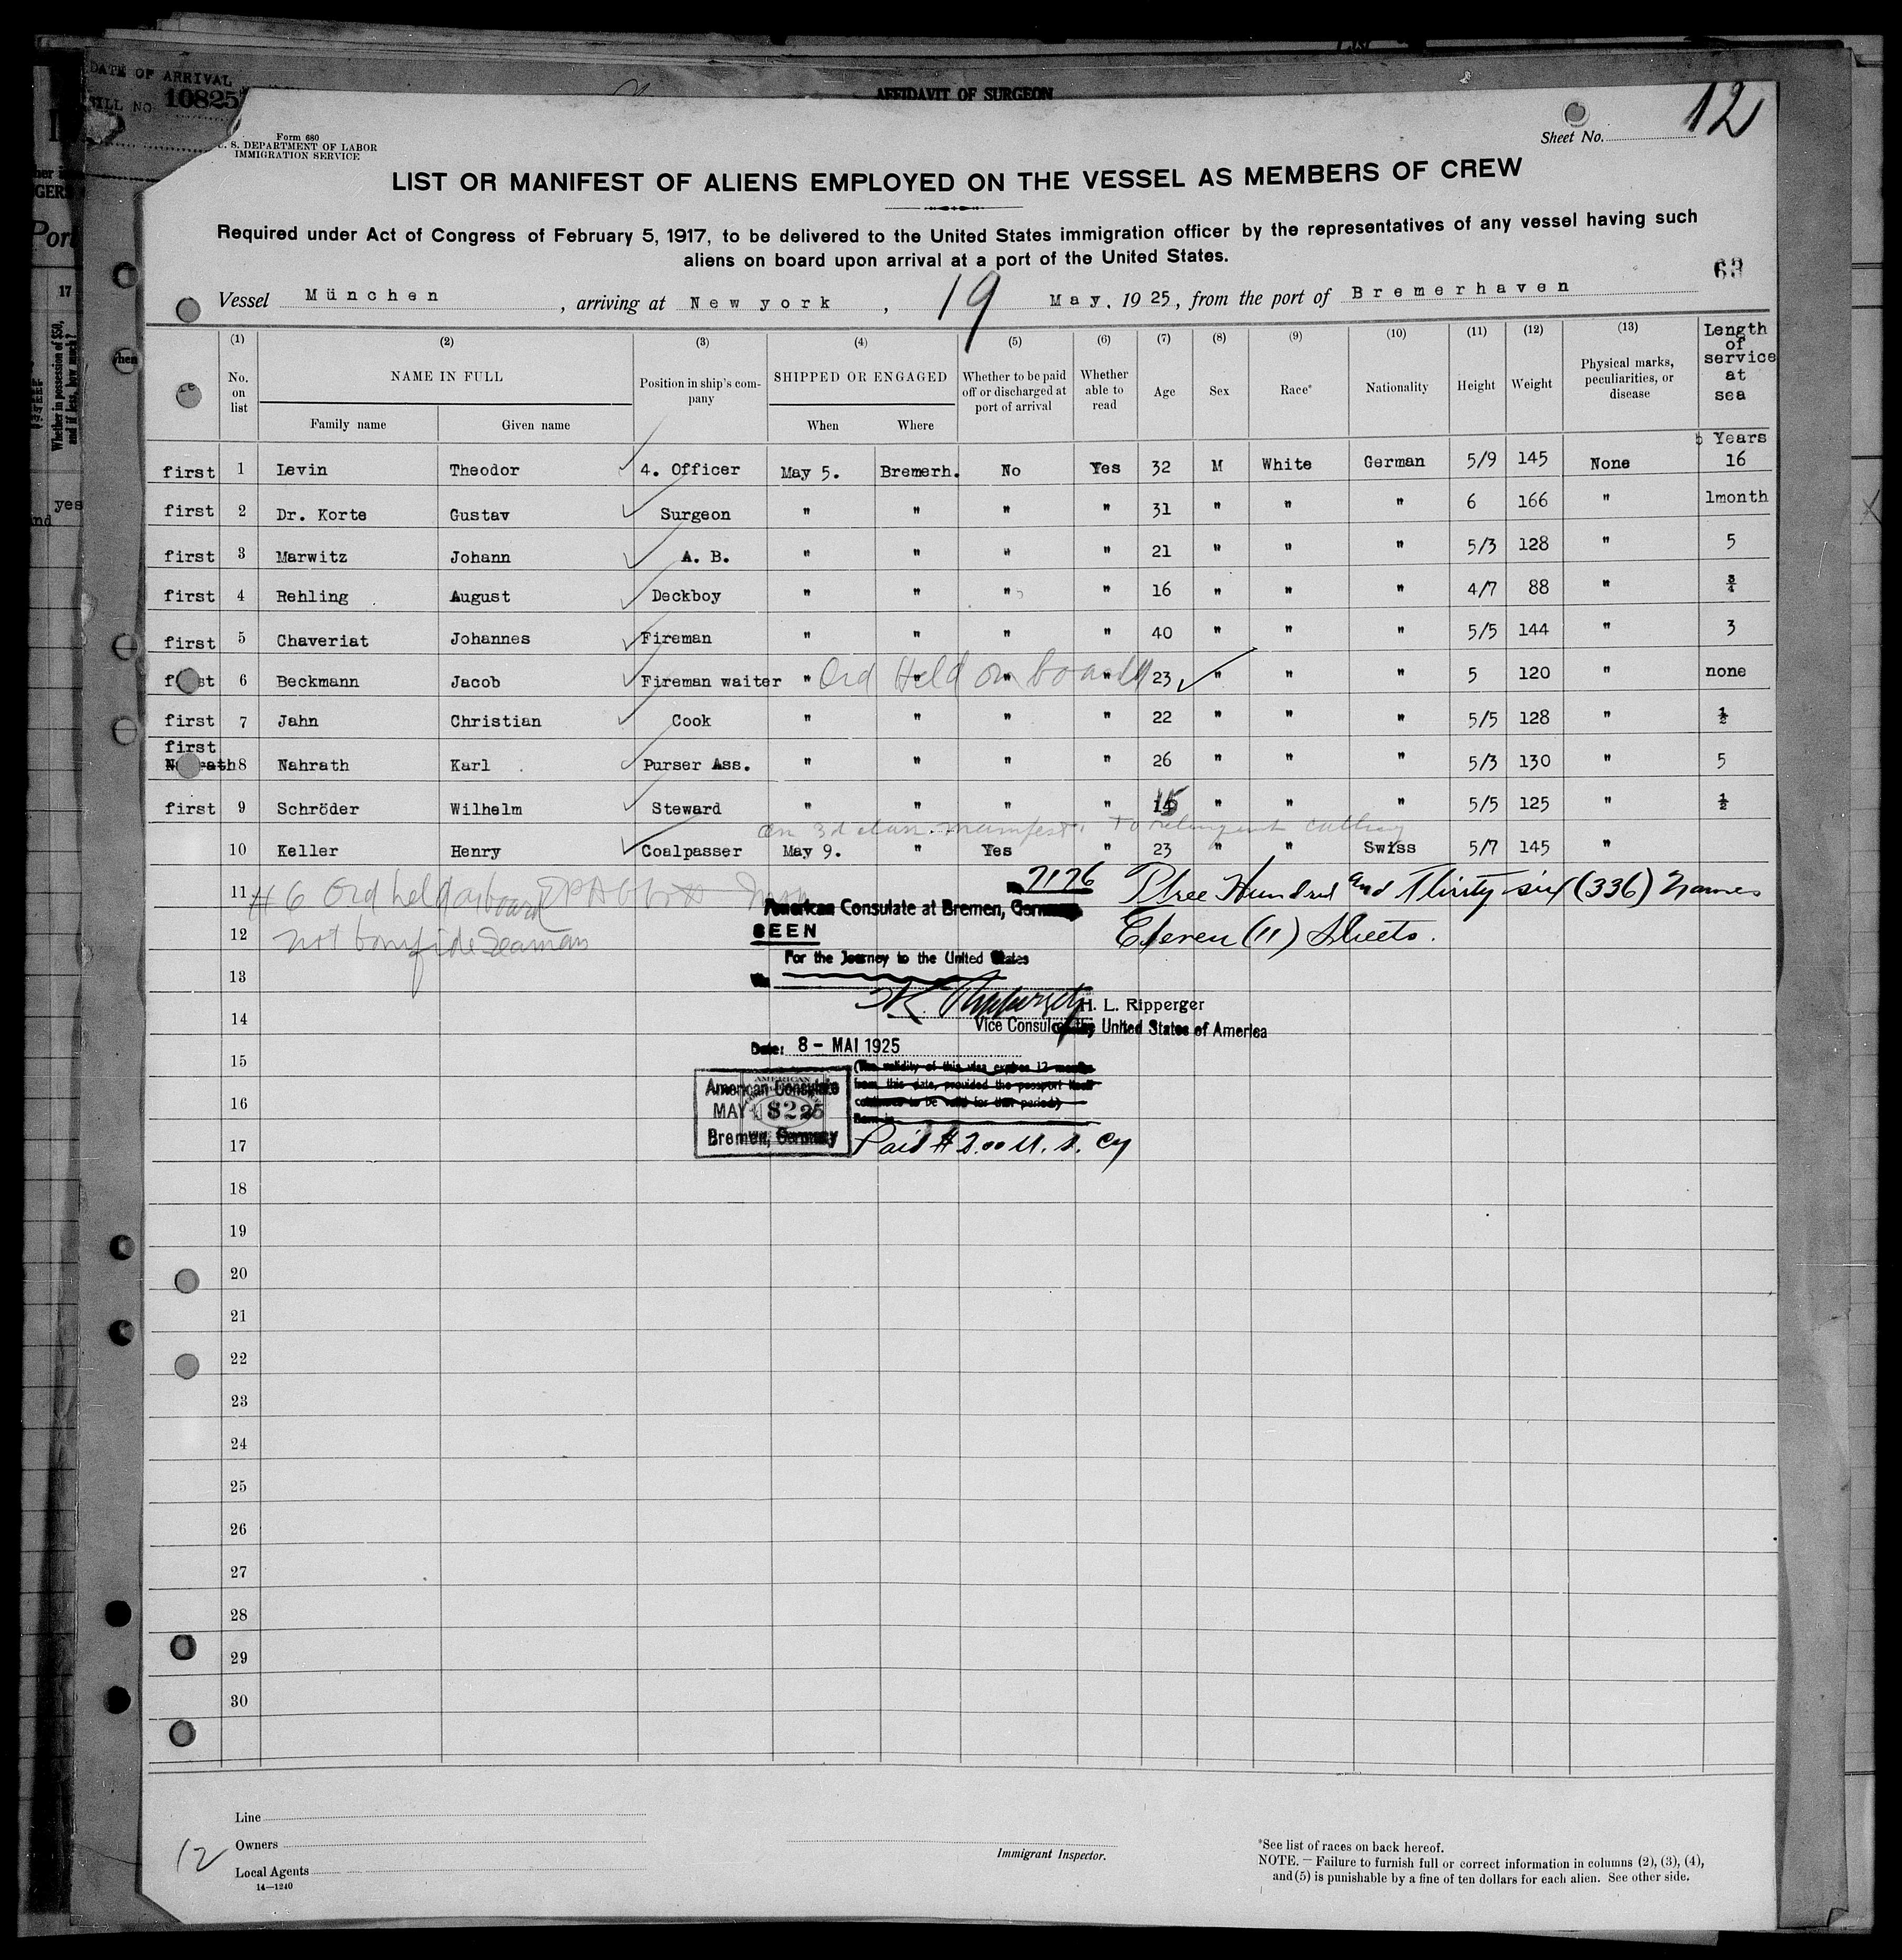 DATE OF ARRIVAL
10825
AFFIDAVIT OF SURGEON
12
Form 680
U. S. DEPARTMENT OF LABOR
IMMIGRATION SERVICE
Sheet No.
LIST OR MANIFEST OF ALIENS EMPLOYED ON THE VESSEL AS MEMBERS OF CREW
Required under Act of Congress of February 5, 1917, to be delivered to the United States immigration officer by the representatives of any vessel having such
aliens on board upon arrival at a port of the United States.
63
Vessel München, arriving at New york, 19 May, 1925, from the port of Bremerhaven
(1) (2) (3) (4) (5) (6) (7) (8) (9) (10) (11) (12) (13)
No. on list NAME IN FULL Family name Given name Position in ship's company SHIPPED OR ENGAGED When Where Whether to be paid off or discharged at port of arrival Whether able to read Age Sex Race* Nationality Height Weight Physical marks, peculiarities, or disease Length of service at sea
Years
first 1 Levin Theodor 4. Officer May 5. Bremerh. No Yes 32 M White German 5/9 145 None 16
first 2 Dr. Korte Gustav Surgeon " " " " 31 " " " 6 166 " 1month
first 3 Marwitz Johann A. B. " " " " 21 " " " 5/3 128 " 5
first 4 Rehling August Deckboy " " " " 16 " " " 4/7 88 " 3/4
first 5 Chaveriat Johannes Fireman " " " " 40 " " " 5/5 144 " 3
first 6 Beckmann Jacob Fireman waiter " " " " 23 " " " 5 120 " none
Ord Held on board
first 7 Jahn Christian Cook " " " " 22 " " " 5/5 128 " 1/2
first
8 Nahrath Karl Purser Ass. " " " " 26 " " " 5/3 130 " 5
first 9 Schröder Wilhelm Steward " " " " 15 " " " 5/5 125 " 1/2
on 3d class manifest. To relinquish calling
10 Keller Henry Coalpasser May 9. " Yes " 23 " " Swiss 5/7 145 "
11 #6 Ord held aboard
7176 Three Hundred and Thirty-six (336) Names
American Consulate at Bremen, Germany
12 not bonifide Seaman
SEEN
Eleven (11) Sheets.
For the Journey to the United States
13
H. L. Ripperger
14
Vice Consul of the United States of America
Date: 8 - MAI 1925
15
(The validity of this visa expires 12 months
from this date, provided the passport itself
continues to be valid for that period)
American Consulate
MAY 8 25
Bremen, Germany
16
17
Paid $2.00 U. S. Cy
18
19
20
21
22
23
24
25
26
27
28
29
30
Line
Owners
Local Agents
14—1240
12
Immigrant Inspector.
*See list of races on back hereof.
NOTE.—Failure to furnish full or correct information in columns (2), (3), (4),
and (5) is punishable by a fine of ten dollars for each alien. See other side.